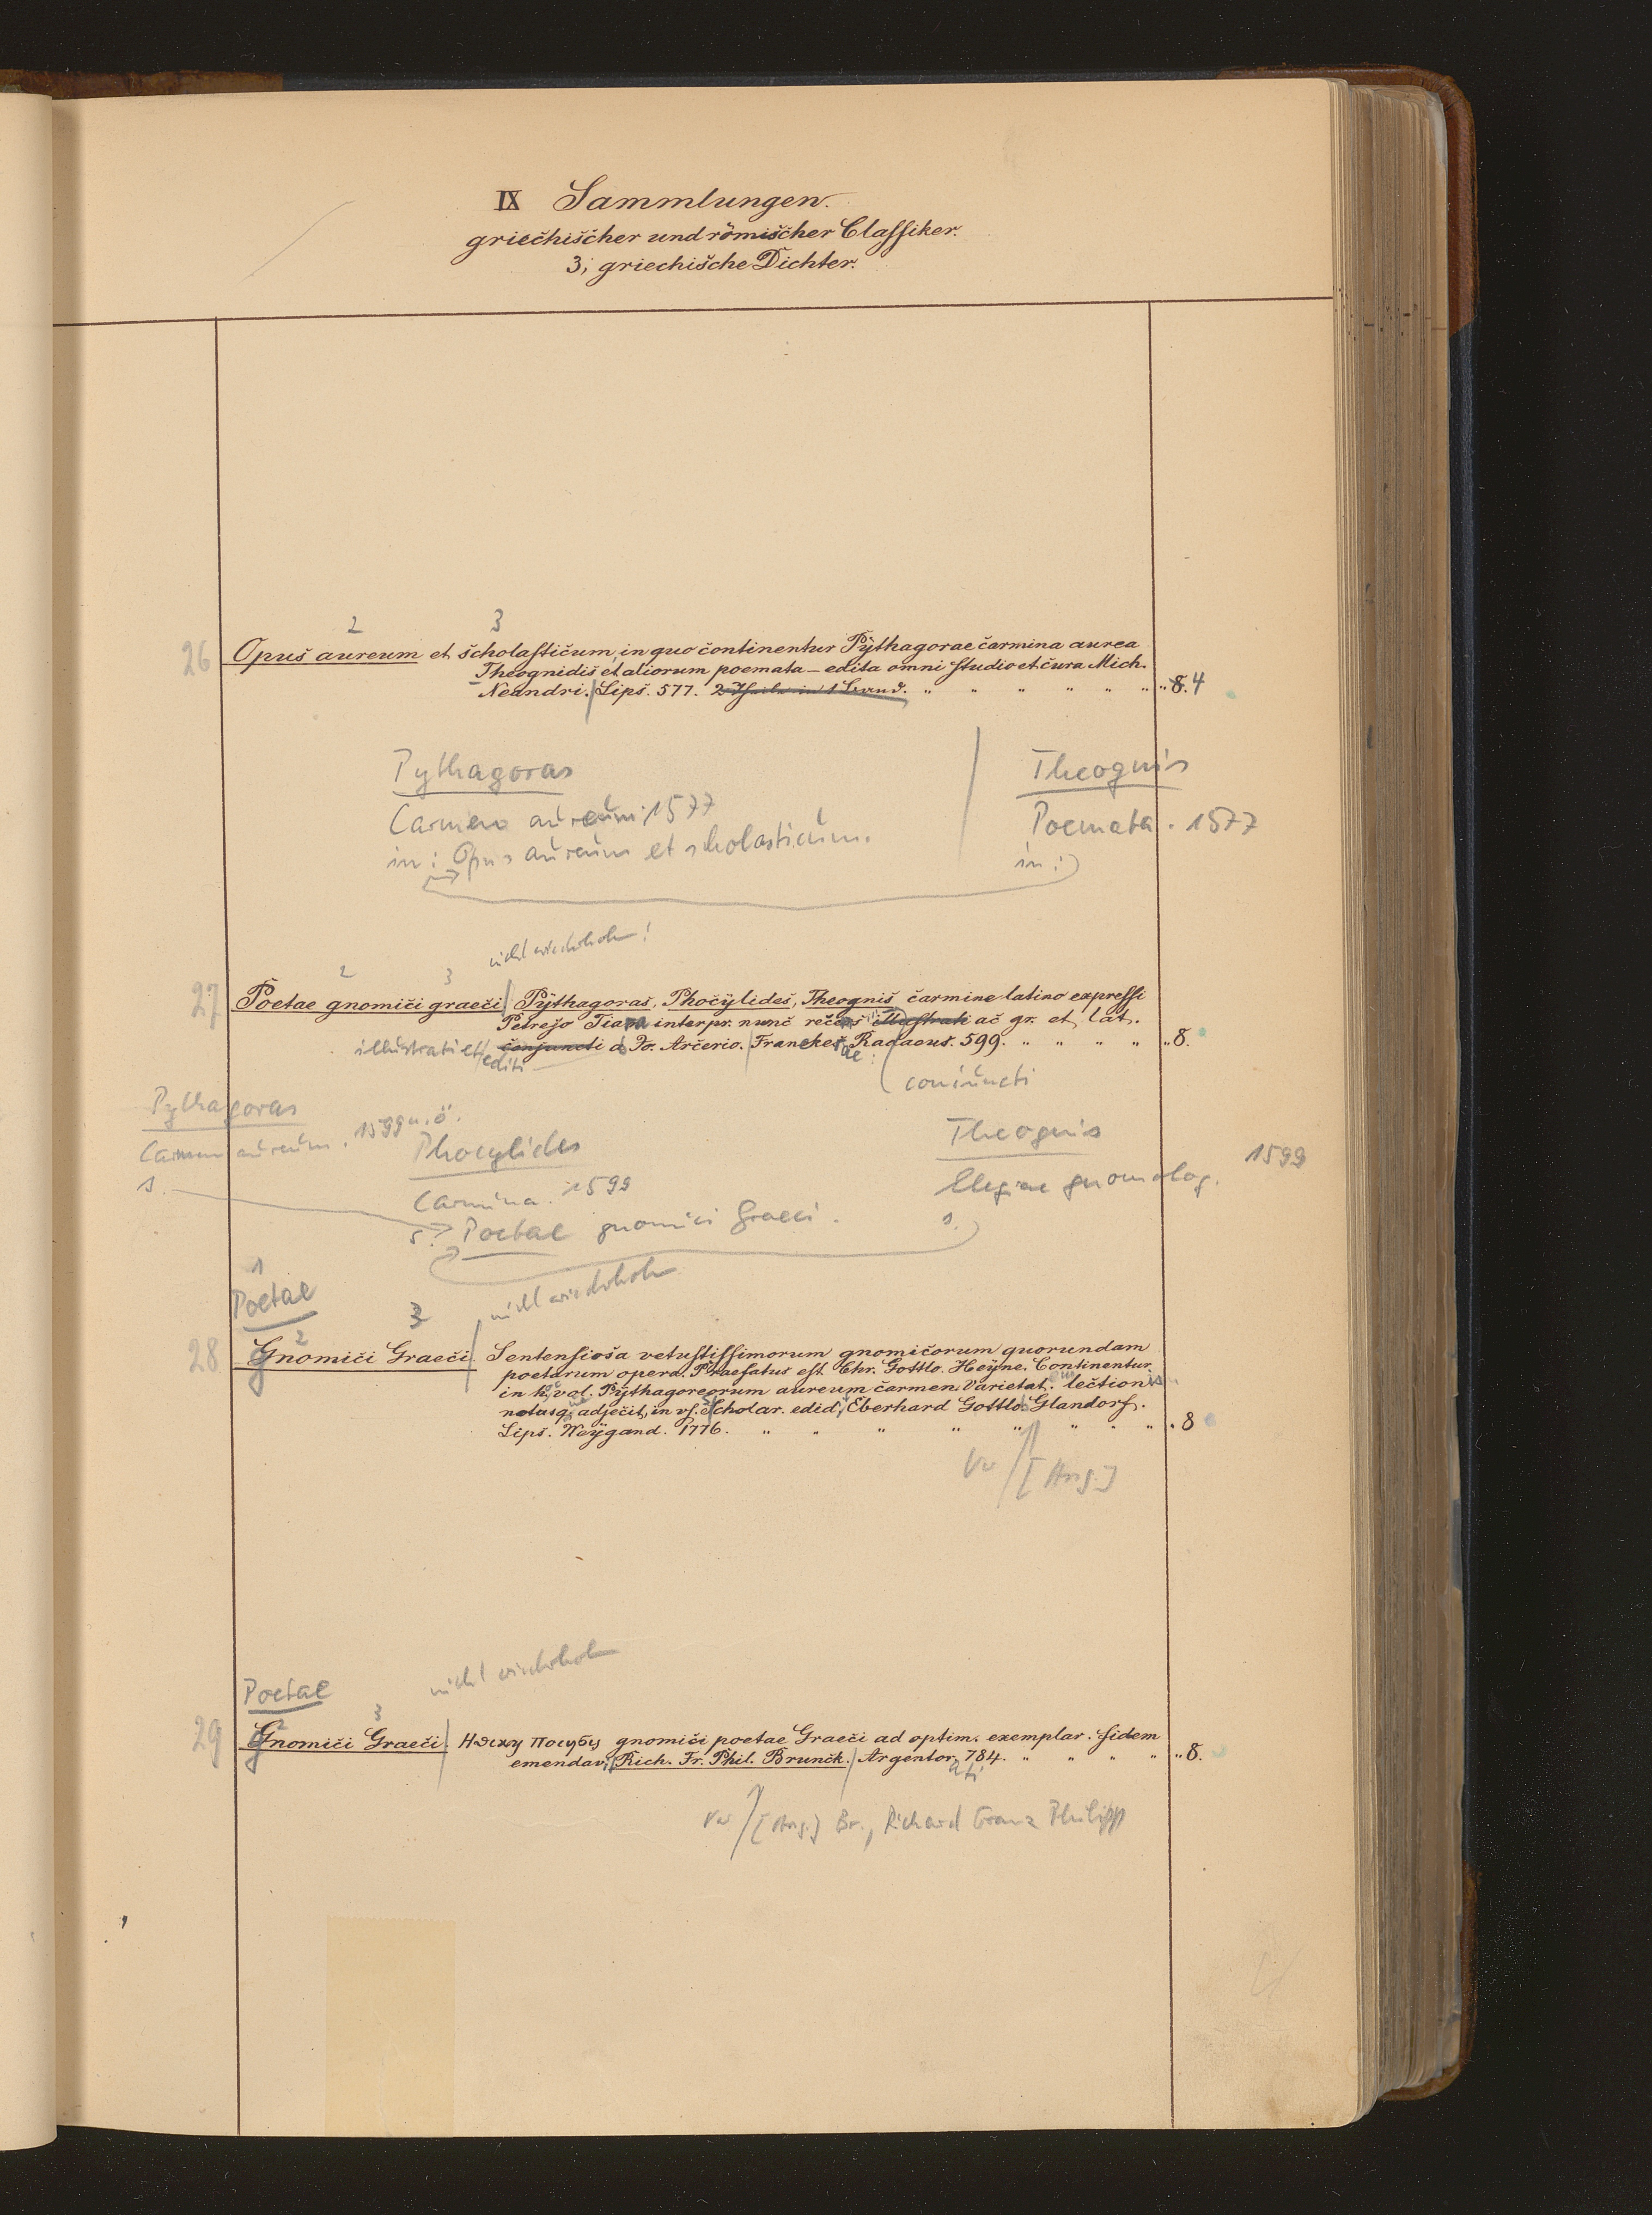 IX Sammlungen.
griechischer und römischer Classiker.
3; griechische Dichter.
2 3
26 Opus aureum et scholasticum, in quo continentur Pythagorae carmina aurea
Theognidis et aliorum poemata – edita omni studio et cura Mich.
Neandri. Lips. 577. 2 Theile in 1 Band. " " " " " " " 8. 4
Pythagoras
Carmen aureum. 1577
in: Opus aureum et scholasticum.
Theognis
Poemata. 1577
in:
nicht wiederholen!
2 3
27 Poetae gnomici graeci Pythagoras, Phocylides, Theognis, carmine latino expressi
Petrejo Tiara interpr. nunc recens illustrati ac gr. et lat.
illustrati et editi conjuncti a Jo. Arcerio. Franeker. Radaeus. 599. " " " " " 8.
coniuncti
Pythagoras
Carmen aureum. 1599 u. ö.
s.
Phocylides
Carmina. 1599
s. Poetae gnomici Graeci.
Theognis
Elegiae gnomolog. 1599
s.
1
Poetae
nicht wiederholen
2 3
28 Gnomici Graeci Sententiosa vetustissimorum gnomicorum quorundam
poetarum opera. Praefatus est Chr. Gottlo. Heyne. Continentur
in h. vol. Pythagoreorum aureum carmen. Varietat. lection
notasq. adjecit, in us. scholar. edid. Eberhard Gottlo. Glandorf.
Lips. Weygand. 1776. " " " " " " " " 8
Vw [Ang.]
nicht wiederholen
Poetae
2 3
29 Gnomici Graeci gnomici poetae Graeci ad optim. exemplar. fidem
emendav. Rich. Fr. Phil. Brunck. Argentorati 784. " " " " " 8.
Vw [Ang.] Br., Richard Franz Philipp